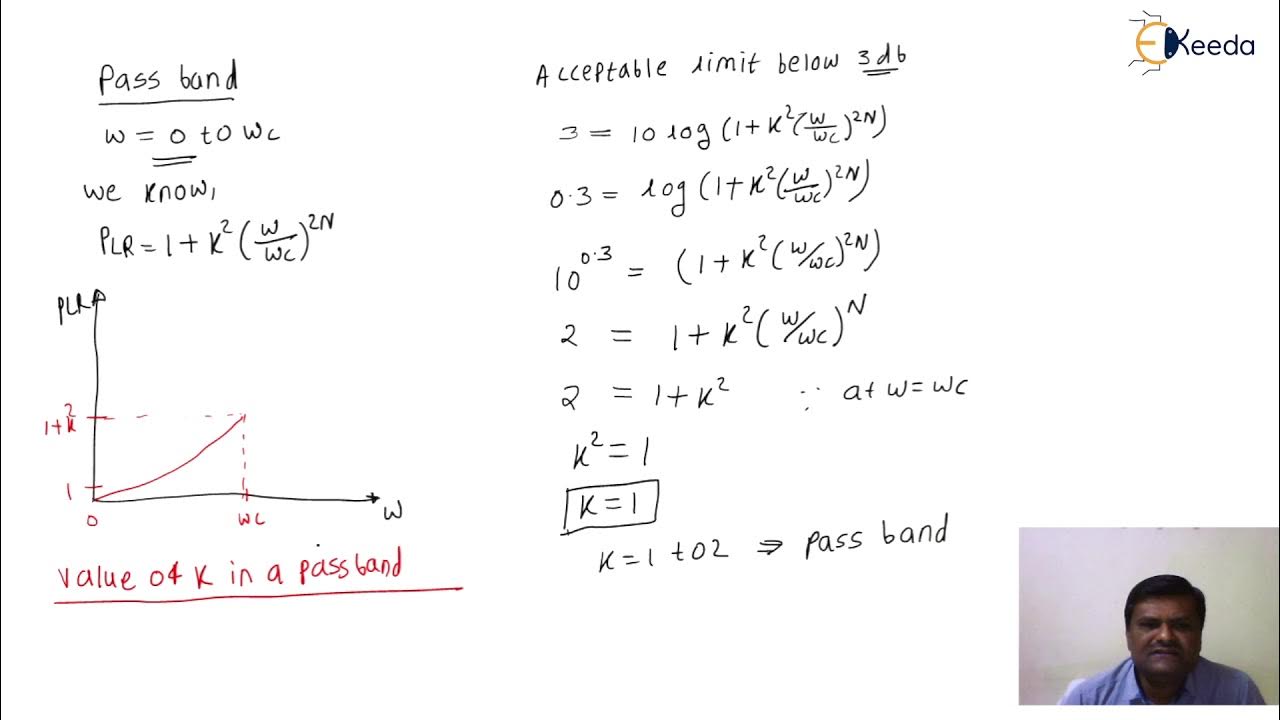 EKeeda
Pass band
w = 0 to wc
we know,
PLR = 1 + K² (w/wc)^2N
PLR
1+K²
1
0
wc
w
value of K in a passband
Acceptable limit below 3 db
3 = 10 log (1 + K² (w/wc)^2N)
0.3 = log (1 + K² (w/wc)^2N)
10^0.3 = (1 + K² (w/wc)^2N)
2 = 1 + K² (w/wc)^N
2 = 1 + K² ∵ at w = wc
K² = 1
K = 1
K = 1 to 2 ⇒ pass band